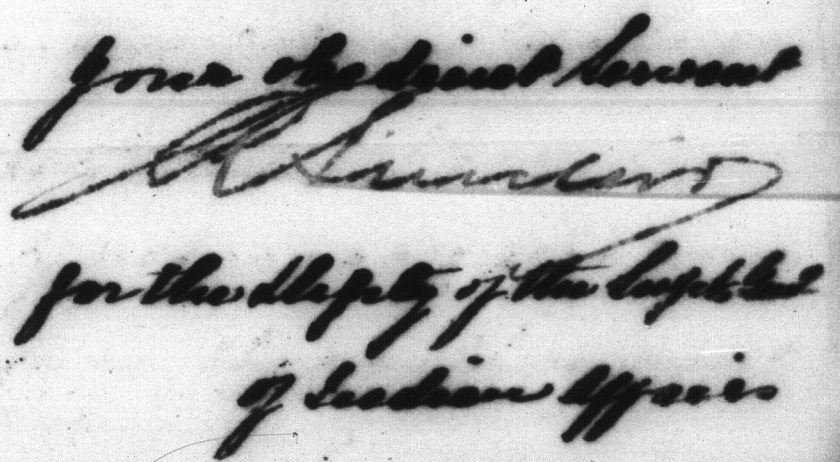 Your obedient Servant
R Sinclair
for the Deputy of the Supt. Genl
of Indian Affairs